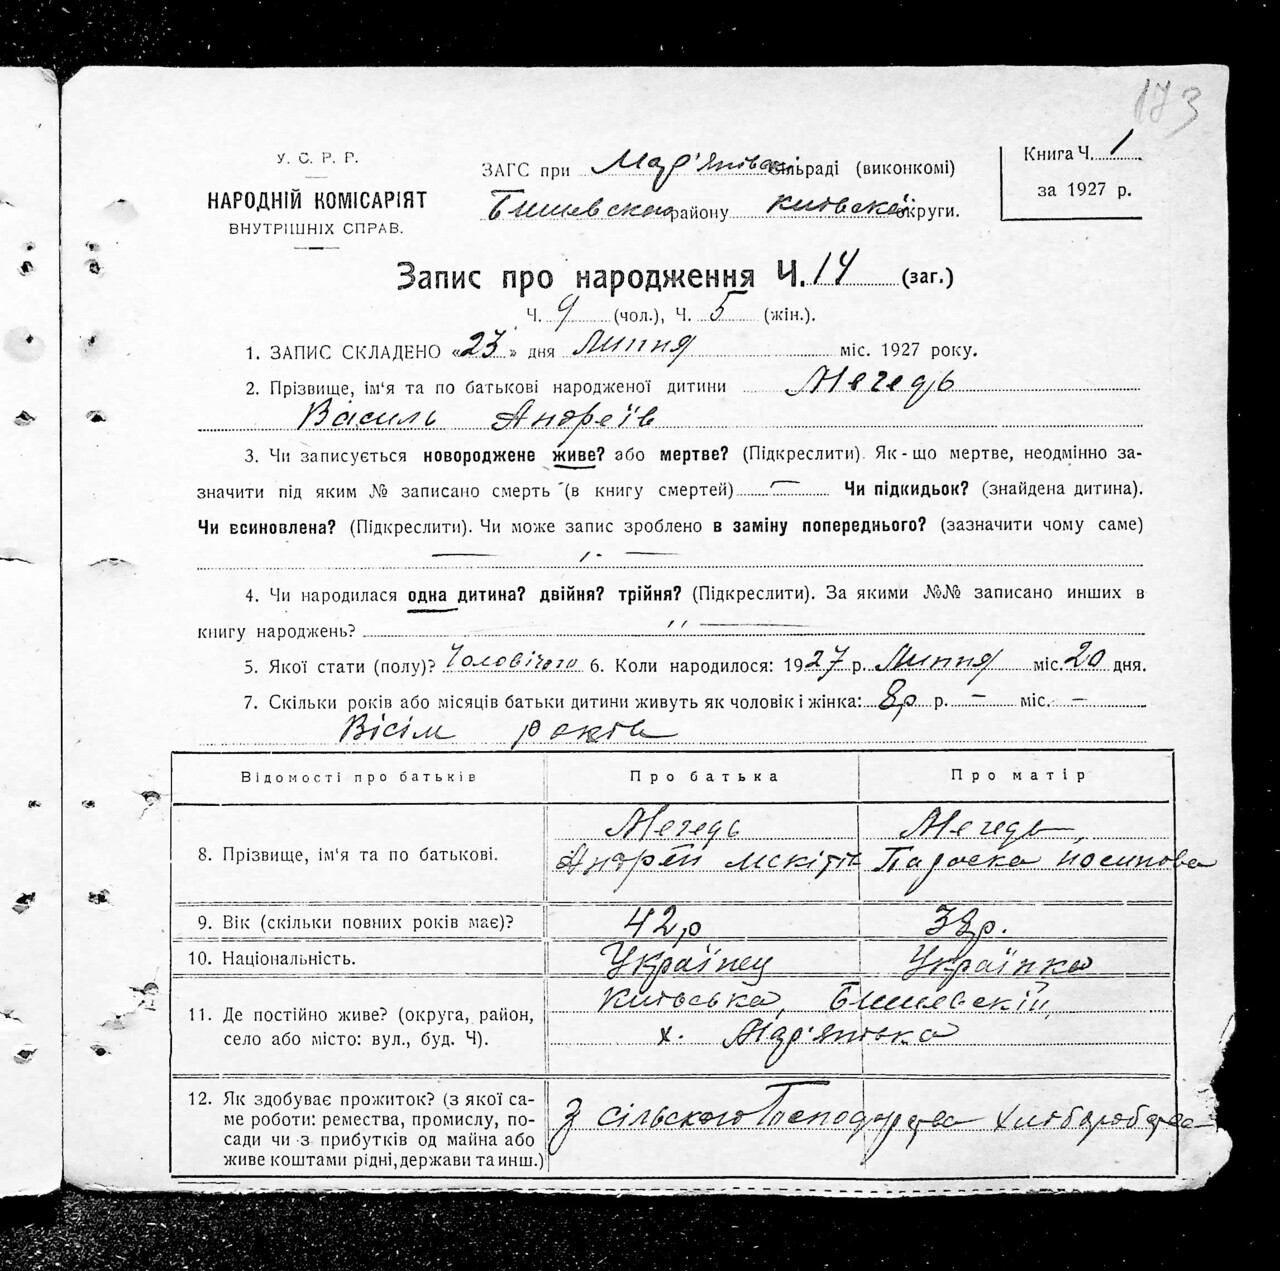 173
У. С. Р. Р.
НАРОДНІЙ КОМІСАРІЯТ
ВНУТРІШНІХ СПРАВ.
ЗАГС при Мар'янівск сільраді (виконкомі)
Бишевском району Київської округи.
Книга Ч. 1
за 1927 р.
Запис про народження Ч. 14 (заг.)
Ч. 9 (чол.), Ч. 5 (жін.).
1. ЗАПИС СКЛАДЕНО «23» дня Липня міс. 1927 року.
2. Прізвище, ім'я та по батькові народженої дитини Мегедь
Василь Андреїв
3. Чи записується новороджене живе? або мертве? (Підкреслити). Як-що мертве, неодмінно за-
значити під яким № записано смерть (в книгу смертей) — Чи підкидьок? (знайдена дитина).
Чи всиновлена? (Підкреслити). Чи може запис зроблено в заміну попереднього? (зазначити чому саме)
4. Чи народилася одна дитина? двійня? трійня? (Підкреслити). За якими №№ записано инших в
книгу народжень? "
5. Якої стати (полу)? Чоловічого 6. Коли народилося: 1927 р. Липня міс. 20 дня.
7. Скільки років або місяців батьки дитини живуть як чоловік і жінка: 8р р. — міс. —
Вісім років
Відомості про батьків Про батька Про матір
8. Прізвище, ім'я та по батькові. Мегедь Мегедь,
Андрей Мскітів Параска Йосипова
9. Вік (скільки повних років має)? 42р 38р.
10. Національність. Українец Українка
11. Де постійно живе? (округа, район,
село або місто: вул., буд. Ч). Київська, Бишевский,
х. Мар'янівка
12. Як здобуває прожиток? (з якої са-
ме роботи: ремества, промислу, по-
сади чи з прибутків од майна або
живе коштами рідні, держави та инш.) З сільского Господарства хліборобства